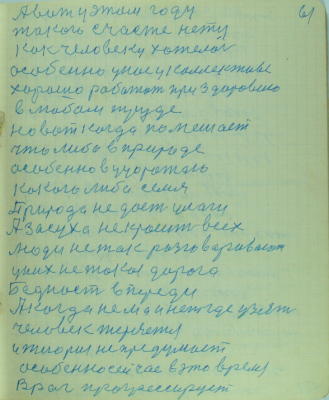 61
А вот у этом году
такого счасте нету
как человеку хотелос
особенно у насу коллективе
хорошо работат при здоровию
в любом трузде
но вот когда помешает
что либо в природе
особенно в у
какого либо семя
Природа не дает улаги
А засуха не красит всех
люди не так разговаривают
у них не такая дорога
Бедност впереди
А когда нема и негде узят
человек теряется
и
особенно сейчас в это время
Враг прогрессирует